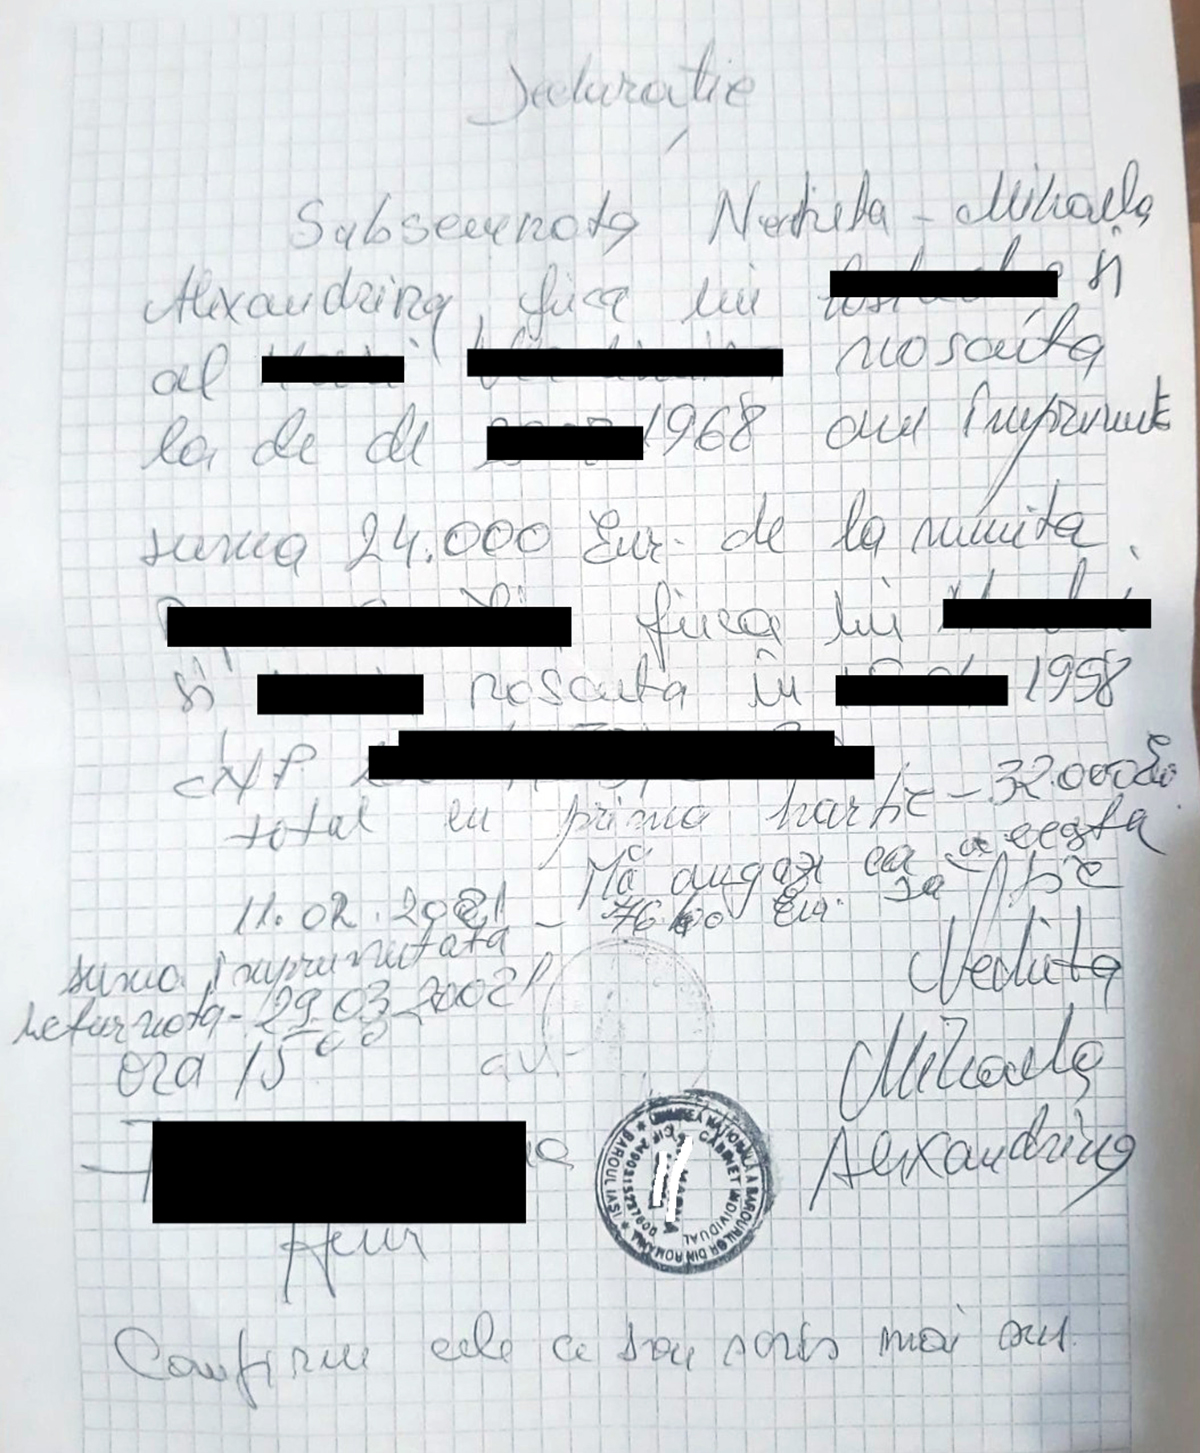 Declarație
Subsemnata Nechita - Mihaela
Alexandrina fiica lui și
al născută
la de de 1968 am împrumut
suma 24.000 Eur. de la numita
fiica lui
și născuta în 1958
CNP
total cu prima hartie - 32.000 Eu
Mă angajez ca aceasta
11.02.2021 - 76 Eur. Sa
suma împrumutata
returnata - 29.03.20021
Nechita
ora 15 00
av.
Mihaela
Alexandrina
UNIUNEA NAȚIONALĂ A BAROURILOR DIN ROMANIA * BAROUL IAȘI *
CABINET INDIVIDUAL
Confirm cele ce sau scris mai sus.